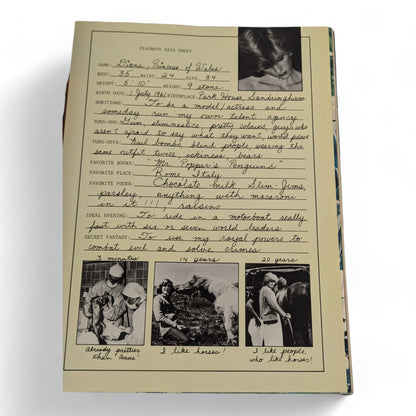 PLAYMATE DATA SHEET
NAME: Diana, Princess of Wales
BUST: 35 WAIST: 24 HIPS: 34
HEIGHT: 5' 10" WEIGHT: 9 stone
BIRTH DATE: 1 July 1961 BIRTHPLACE: Park House, Sandringham
AMBITIONS: To be a model/actress and
someday run my own talent agency
TURN-ONS: Slim gymnastics, pretty colours, guys who
aren't afraid to say what they want, world peace
TURN-OFFS: Nail bombs, blind people wearing the
same outfit twice, ickiness, wars
FAVORITE BOOKS: "Mr. Popper's Penguins"
FAVORITE PLACE: Rome, Italy
FAVORITE FOODS: Chocolate milk, Slim Jims,
parsley, anything with macaroni
in it!!! raisins
IDEAL EVENING: To ride in a motorboat really
fast with six or seven world leaders
SECRET FANTASY: To use my royal powers to
combat evil and solve crimes
3 minutes
14 years
20 years
already prettier
than Anne!
I like horses!
I like people
who like horses!